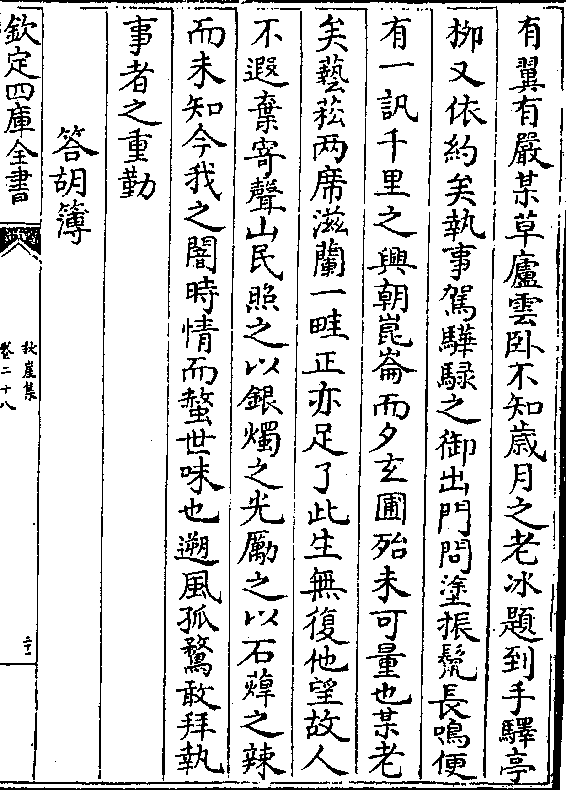 有翼有嚴某草廬雲卧不知歳月之老冰題到手驛亭
栁又依約矣執事駕驊騄之御出門問塗振鬛長鳴便
有一訊千里之興朝崑崙而夕玄圃殆未可量也某老
矣藝菘两席滋蘭一畦正亦足了此生無復他望故人
不遐棄寄聲山民照之以銀燭之光勵之以石蕇之辣
而未知今我之闇時情而螫世味也遡風孤騖敢拜執
事者之重勤
答胡簿
欽定四庫全書
秋崖集
卷二十八